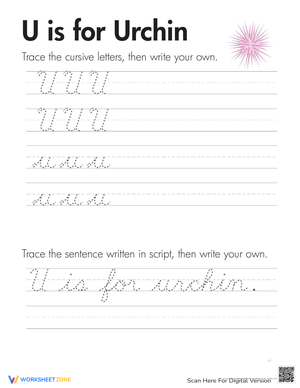 U is for Urchin
Trace the cursive letters, then write your own.
U U U
U U U
u u u
u u u
Trace the sentence written in script, then write your own.
U is for urchin.
WORKSHEETZONE
Scan Here For Digital Version